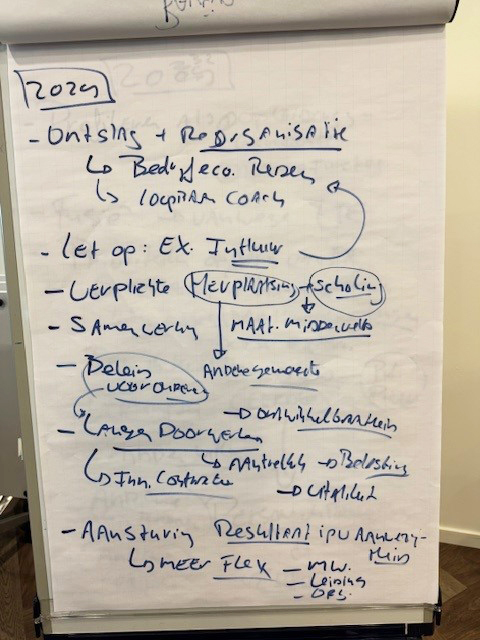 2029
- Ontslag + Reorganisatie
↳ Bedrijfseco. Redenen
↳ loopbaan coach
- Let op: Ex. Instroom
- Verplichte Herplaatsing + scholing
- Samenwerking MAAT. Middenveld
- Beleid Andere gemeente
voor ouderen
→ Ontwikkelbanken
- Langer Doorwerken
↳ Aantrekk → Belasting
↳ Inn. Contracten
→ Vitaliteit
- Aansturing Resultaat ipv Aanwezig-
heid
↳ meer Flex - MW.
- Leiding
- ORG.